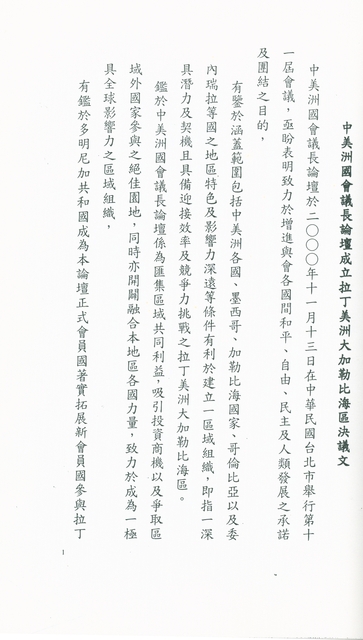 中美洲國會議長論壇成立拉丁美洲大加勒比海區決議文
中美洲國會議長論壇於二○○○年十一月十三日在中華民國台北市舉行第十
一屆會議，亟盼表明致力於增進與會各國間和平、自由、民主及人類發展之承諾
及團結之目的，
有鑒於涵蓋範圍包括中美洲各國、墨西哥、加勒比海國家、哥倫比亞以及委
內瑞拉等國之地區特色及影響力深遠等條件有利於建立一區域組織，即指一深
具潛力及契機且具備迎接效率及競爭力挑戰之拉丁美洲大加勒比海區。
鑑於中美洲國會議長論壇係為匯集區域共同利益，吸引投資商機以及爭取區
域外國家參與之絕佳園地，同時亦開闢融合本地區各國力量，致力於成為一極
具全球影響力之區域組織，
有鑑於多明尼加共和國成為本論壇正式會員國著實拓展新會員國參與拉丁
1